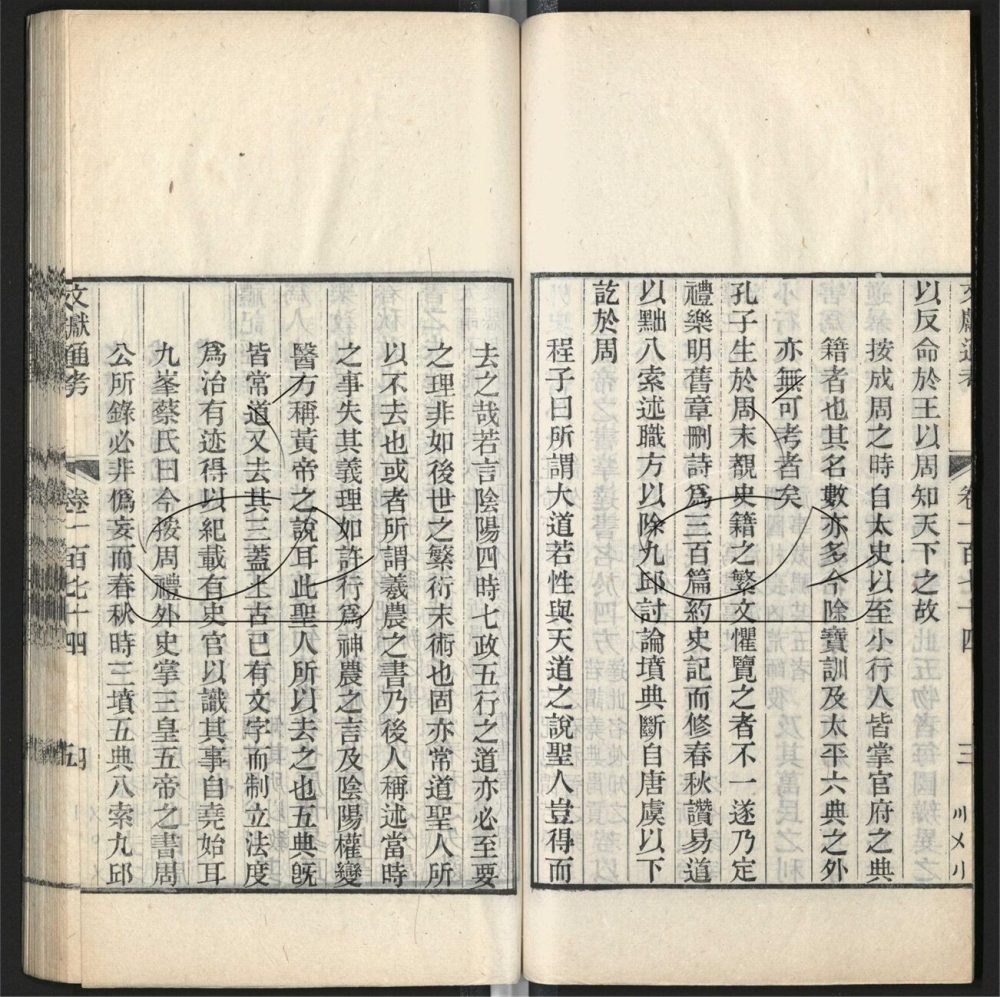 文獻通考 卷一百七十四 三
以反命於王以周知天下之故
按成周之時自太史以至小行人皆掌官府之典
籍者也其名數亦多今除寶訓及太平六典之外
亦無可考者矣
孔子生於周末覩史籍之繁文懼覽之者不一遂乃定
禮樂明舊章刪詩爲三百篇約史記而修春秋讚易道
以黜八索述職方以除九邱討論墳典斷自唐虞以下
訖於周
程子曰所謂大道若性與天道之說聖人豈得而
去之哉若言陰陽四時七政五行之道亦必至要
之理非如後世之繁衍末術也固亦常道聖人所
以不去也或者所謂羲農之書乃後人稱述當時
之事失其義理如許行爲神農之言及陰陽權變
醫方稱黃帝之說耳此聖人所以去之也五典旣
皆常道又去其三蓋上古已有文字而制立法度
爲治有迹得以紀載有史官以識其事自堯始耳
九峯蔡氏曰今按周禮外史掌三皇五帝之書周
公所錄必非僞妄而春秋時三墳五典八索九邱
文獻通考 卷一百七十四 五